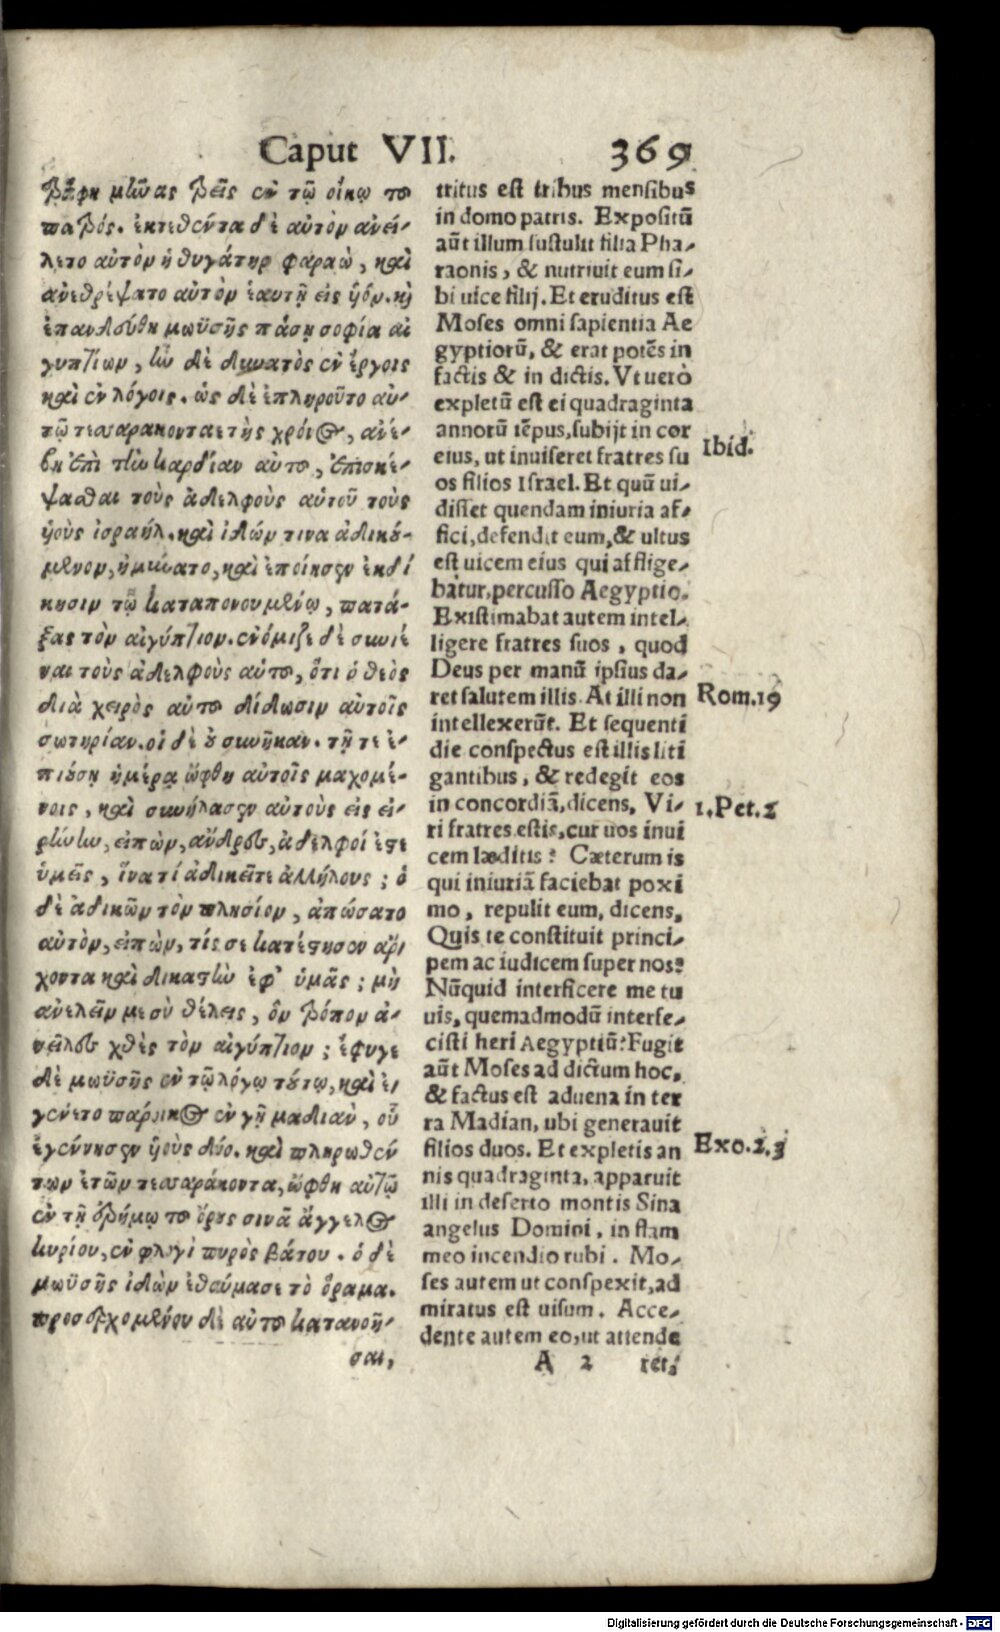 Caput VII. 369
τράφη μῆνας τρεῖς ἐν τῷ οἴκῳ τοῦ
πατρός. ἐκτεθέντα δὲ αὐτὸν ἀνεί-
λετο αὐτὸν ἡ θυγάτηρ φαραὼ, καὶ
ἀνεθρέψατο αὐτὸν ἑαυτῇ εἰς ὑόν. κỳ
ἐπαιδεύθη μωϋσῆς πάσῃ σοφίᾳ αἰ
γυπτίων, ἦν δὲ δυνατὸς ἐν ἔργοις
καὶ ἐν λόγοις. ὡς δὲ ἐπληροῦτο αὐ-
τῷ τεσσαρακονταετὴς χρόνος, ἀνέ-
βη ἐπὶ τὴν καρδίαν αὐτοῦ, ἐπισκέ-
ψασθαι τοὺς ἀδελφοὺς αὐτοῦ τοὺς
ὑοὺς ἰσραήλ. καὶ ἰδών τινα ἀδικού-
μενον, ἠμύνατο, καὶ ἐποίησεν ἐκδί
κησιν τῷ καταπονουμένῳ, πατά-
ξας τὸν αἰγύπτιον. ἐνόμιζε δὲ συνιέ
ναι τοὺς ἀδελφοὺς αὐτοῦ, ὅτι ὁ θεὸς
διὰ χειρὸς αὐτοῦ δίδωσιν αὐτοῖς
σωτηρίαν. οἱ δὲ οὐ συνῆκαν. τῇ τε ἐ-
πιούσῃ ἡμέρᾳ ὤφθη αὐτοῖς μαχομέ-
νοις, καὶ συνήλασεν αὐτοὺς εἰς εἰ-
ρήνην, εἰπὼν, ἄνδρες, ἀδελφοί ἐστε
ὑμεῖς, ἵνατί ἀδικεῖτε ἀλλήλους; ὁ
δὲ ἀδικῶν τὸν πλησίον, ἀπώσατο
αὐτὸν, εἰπὼν, τίς σε κατέστησεν ἄρ
χοντα καὶ δικαστὴν ἐφ' ὑμᾶς; μὴ
ἀνελεῖν με σὺ θέλεις, ὃν τρόπον ἀ-
νεῖλες χθὲς τὸν αἰγύπτιον; ἔφυγε
δὲ μωϋσῆς ἐν τῷ λόγῳ τούτῳ, καὶ ἐ-
γένετο πάροικος ἐν γῇ μαδιὰν, οὗ
ἐγέννησεν ὑοὺς δύο. καὶ πληρωθέν
των ἐτῶν τεσσαράκοντα, ὤφθη αὐτῷ
ἐν τῇ ἐρήμῳ τοῦ ὄρους σινᾶ ἄγγελος
κυρίου, ἐν φλογὶ πυρὸς βάτου. ὁ δὲ
μωϋσῆς ἰδὼν ἐθαύμασε τὸ ὅραμα.
προσερχομένου δὲ αὐτοῦ κατανοῆ-
σαι,
tritus est tribus mensibus
in domo patris. Expositũ
aũt illum sustulit filia Pha-
raonis, & nutriuit eum si-
bi uice filij. Et eruditus est
Moses omni sapientia Ae
gyptiorũ, & erat potẽs in
factis & in dictis. Vt uerò
expletũ est ei quadraginta
annorũ tẽpus, subijt in cor
eius, ut inuiseret fratres su
os filios Israel. Et quũ ui-
disset quendam iniuria af-
fici, defendit eum, & ultus
est uicem eius qui afflige-
batur, percusso Aegyptio.
Existimabat autem intel-
ligere fratres suos, quod
Deus per manũ ipsius da-
ret salutem illis. At illi non
intellexerũt. Et sequenti
die conspectus est illis liti
gantibus, & redegit eos
in concordiã, dicens, Vi-
ri fratres estis, cur uos inui
cem læditis? Cæterum is
qui iniuriã faciebat poxi
mo, repulit eum, dicens,
Quis te constituit princi-
pem ac iudicem super nos?
Nũquid interficere me tu
uis, quemadmodũ interfe-
cisti heri Aegyptiũ? Fugit
aũt Moses ad dictum hoc,
& factus est aduena in ter
ra Madian, ubi generauit
filios duos. Et expletis an
nis quadraginta, apparuit
illi in deserto montis Sina
angelus Domini, in flam
meo incendio rubi. Mo-
ses autem ut conspexit, ad
miratus est uisum. Acce-
dente autem eo, ut attende
A 2 ret,
Ibid.
Rom.19
1.Pet.2
Exo.2.3
Digitalisierung gefördert durch die Deutsche Forschungsgemeinschaft - DFG